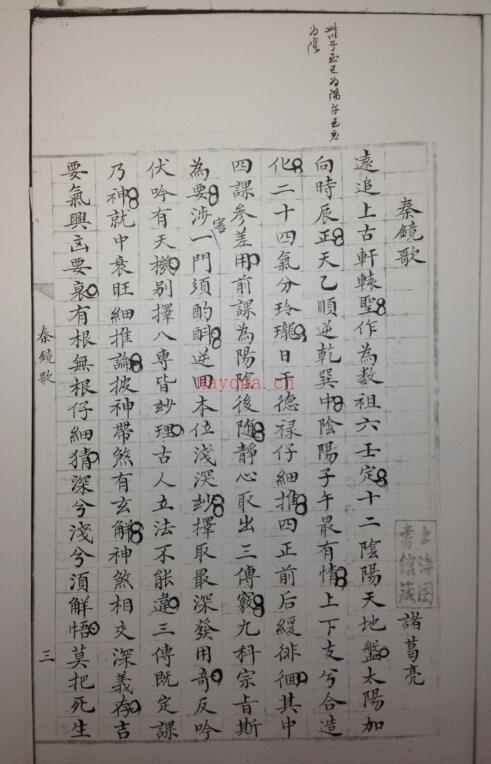 為陰
秦鏡歌
諸葛亮
遠追上古軒轅聖作為數祖六壬定十二陰陽天地盤太陽加
向時辰正天乙順逆乾巽中陰陽子午最有情上下支兮合造
化二十四氣分玲瓏日干德祿仔細推四正前后緩徘徊其中
四課參差用前課為陽陰後隨靜心取出三傳竅九科宗旨斯
為要涉害一門須酌酙逆回本位淺深玅擇取最深發用奇反吟
伏吟有天機別擇八專皆玅理古人立法不能違三傳既定課
乃神就中衰旺細推論披神帶煞有玄解神煞相交深義存吉
要氣興凶要衰有根無根仔細猜深兮淺兮須解悟莫把死生
秦鏡歌
三
上海图
書館藏
nayona.cn